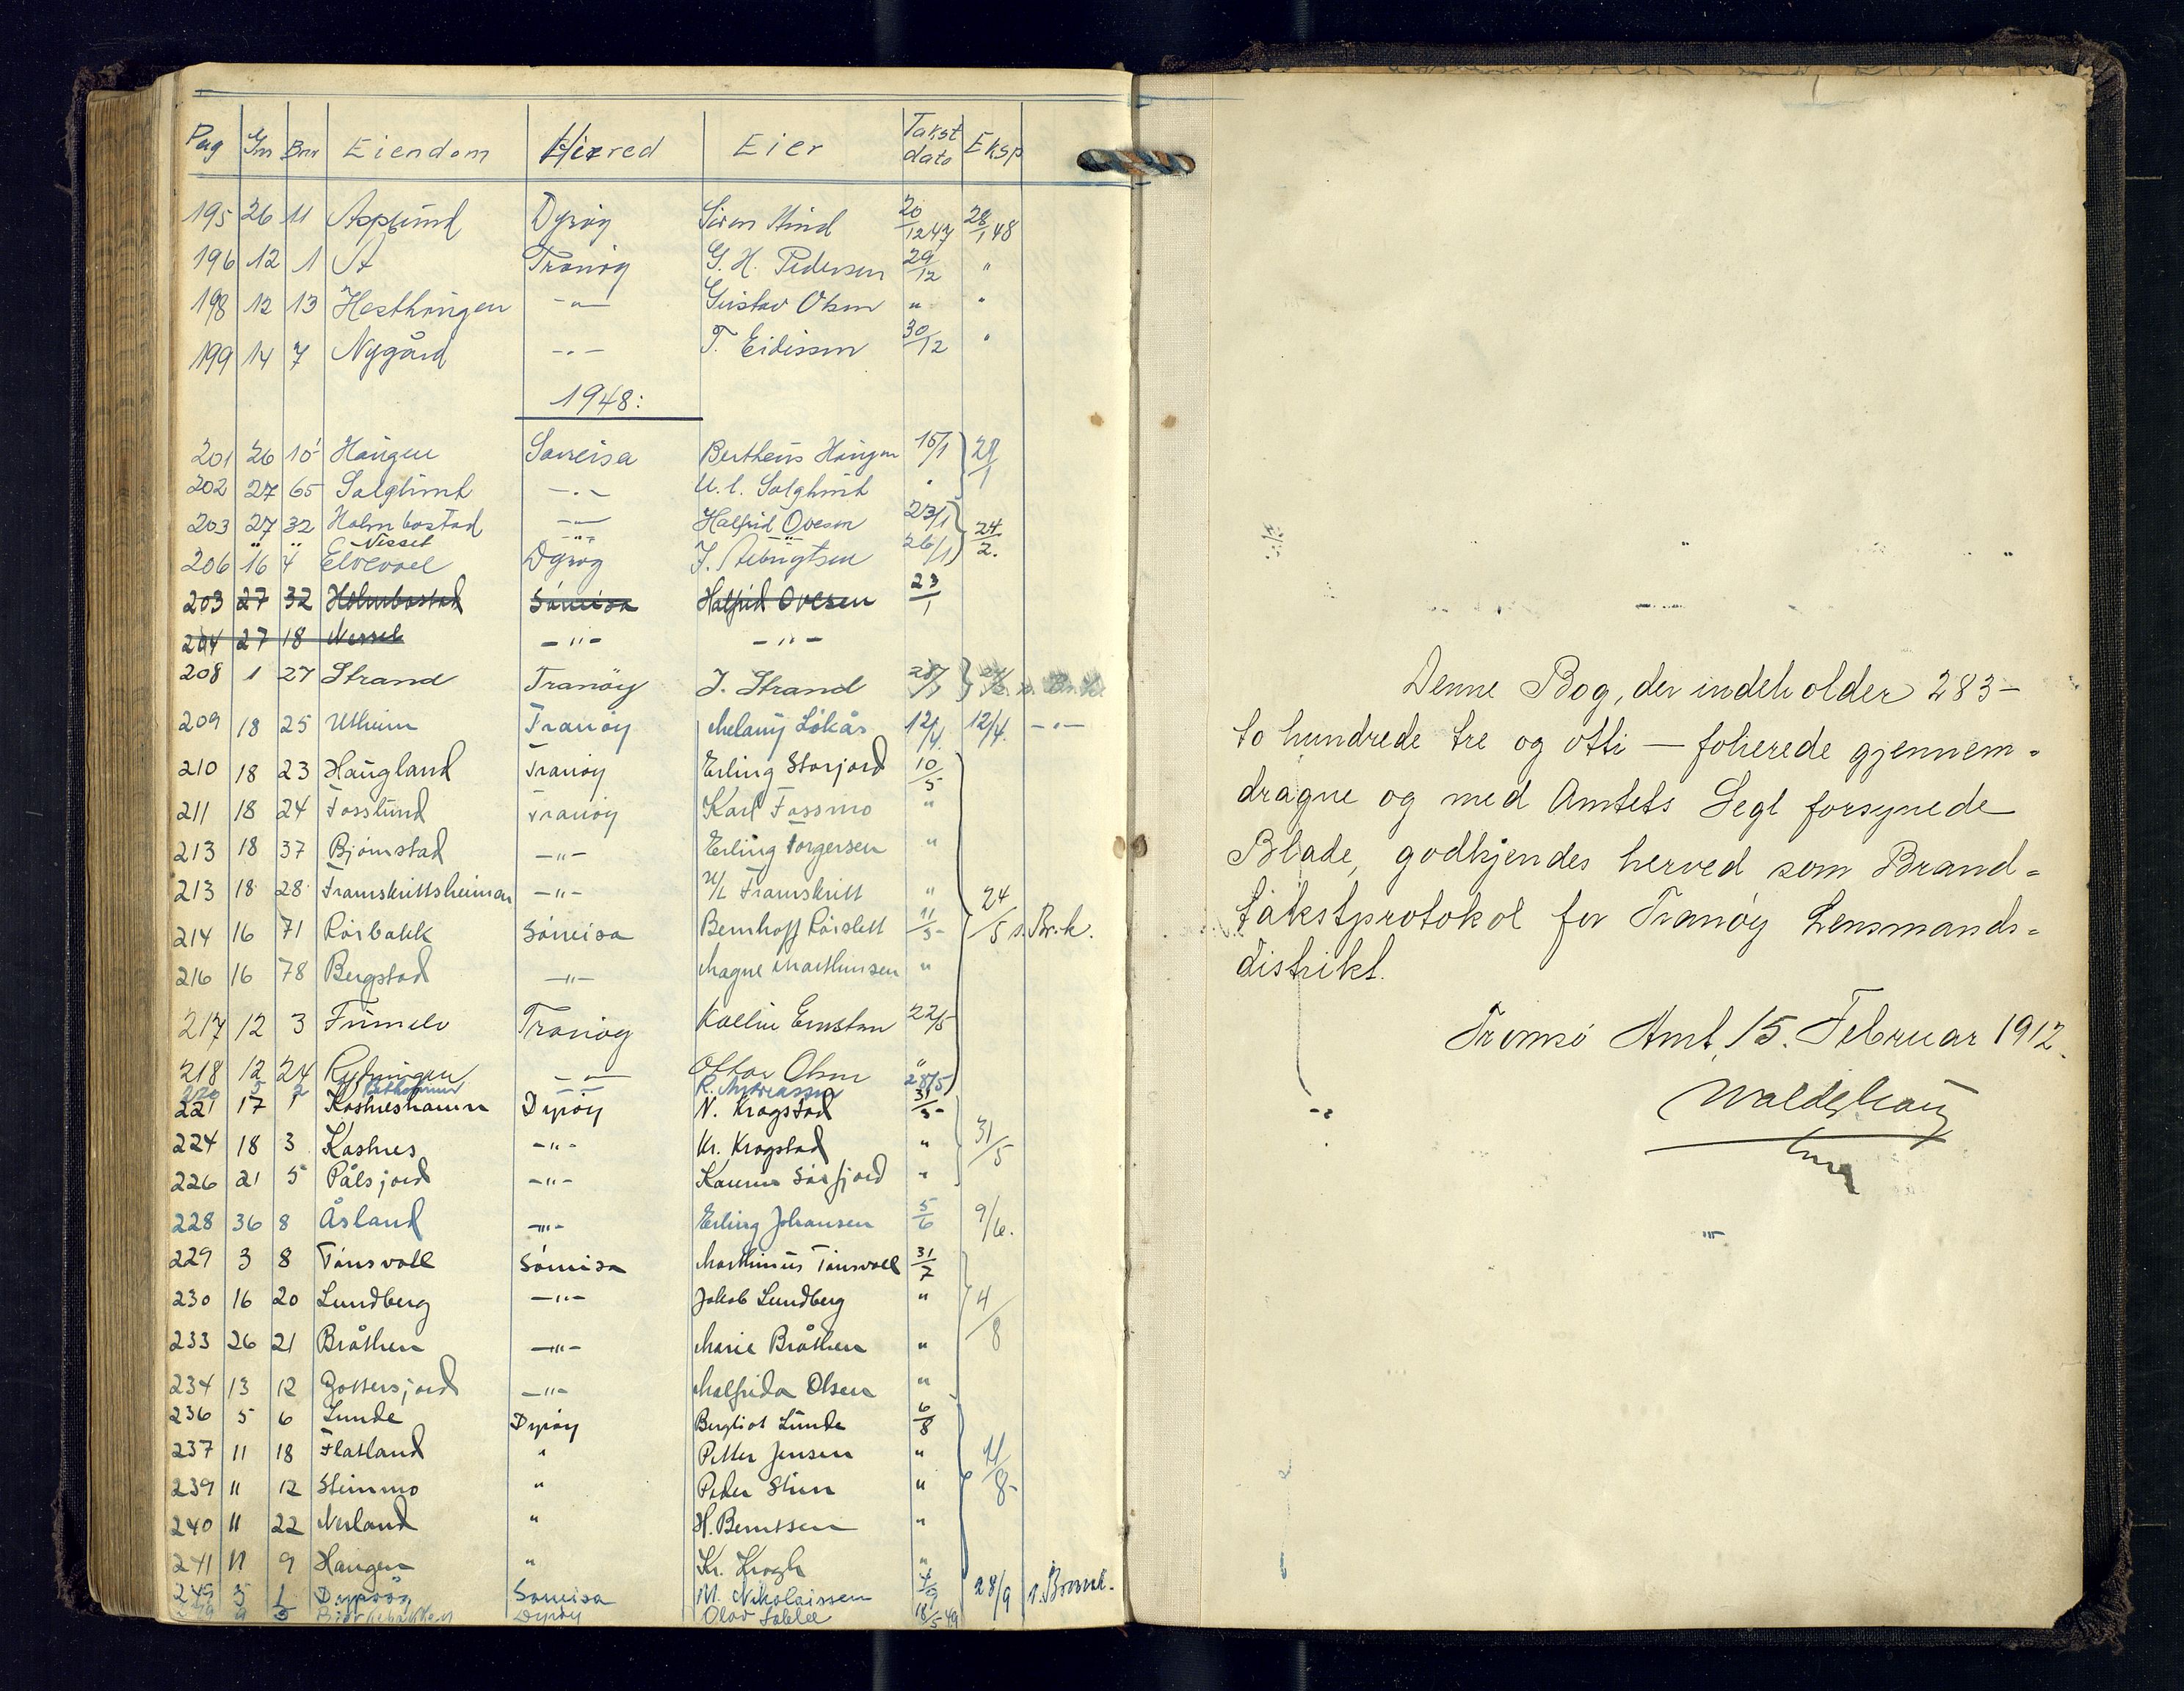 Pag Gnr Bnr Eiendom Herred Eier Takst dato Eksp
195 26 11 Asplund Dyrøy 20/12 47 28/1 48
196 12 1 Å Tranøy G. H. Pedersen 29/12 "
198 12 13 Hesthaugen -"- Gustav Olsen " "
199 14 7 Nygård -"- T. Eidissen 30/12 "
1948:
201 26 10 Haugen Sørreisa Bertheus Haugen 15/1 29/1
202 27 65 Solglimt -"- Solglimt "
203 27 32 Holmbostad -"- Halfrid Ovesen 23/1 24/2.
" " Nesset -"- -"-
206 16 4 Elvevoll Dyrøy 26/1
203 27 32 Holmbostad Sørreisa Halfrid Ovesen 23/1
204 27 18 Nesset -"- -"-
208 1 27 Strand Tranöy J. Strand
209 18 25 Utheim Tranøy Melany Lökås 12/4. 12/4. -"-
210 18 23 Haugland Tranøy Erling Storjord 10/5
211 18 24 Fosslund Tranøy Karl Fossmo "
213 18 37 Bjørnstad -"- Erling Torgersen "
213 18 28 Framskrittsheimen -"- Framskritt " 24/5 s. Br.k.
214 16 71 Rørbakk Sørreisa Bernhoff Rørslett 11/5
216 16 78 Bergstad -"- Magne Marthinsen "
217 12 3 Tranøy 22/5
218 12 24 -"- Ottar Olsen "
220 5 2 -"- R. Andreassen 28/5
221 17 1 Kastneshamn Dyrøy N. Krogstad 31/5
224 18 3 Kastnes -"- Kr. Krogstad " 31/5
226 21 5 Pålsjord -"- Sørfjord "
228 36 8 Åsland -"- Erling Johansen 5/6 9/6.
229 3 8 Tørisvoll Sørreisa Marthinus Tørisvoll 31/7
230 16 20 Lundberg -"- Jakob Lundberg " 4/8
233 26 21 Bråthen -"- Marie Bråthen "
234 13 12 Gottersjord -"- Malfrida Olsen "
236 5 6 Lunde Dyrøy Bergliot Lunde 6/8
237 11 18 Flatland " Petter Jensen " 11/8-
239 11 12 Steinmo " Peder Stien "
240 11 22 Nerland " H. Berntsen "
241 11 9 Haugen " Kr. Krogh "
249 3 1 Dyrøy Sørreisa M. Nikolaissen 4/9 28/9
9 5 Bjørkebakken Dyrøy Olav 18/5 49
Denne Bog, der indeholder 283 -
to hundrede tre og otti - folierede gjennem=
dragne og med Amtets Segl forsynede
Blade, godkjendes herved som Brand=
takstprotokol for Tranøy Lensmands=
distrikt.
Tromsø Amt, 15. Februar 1912.